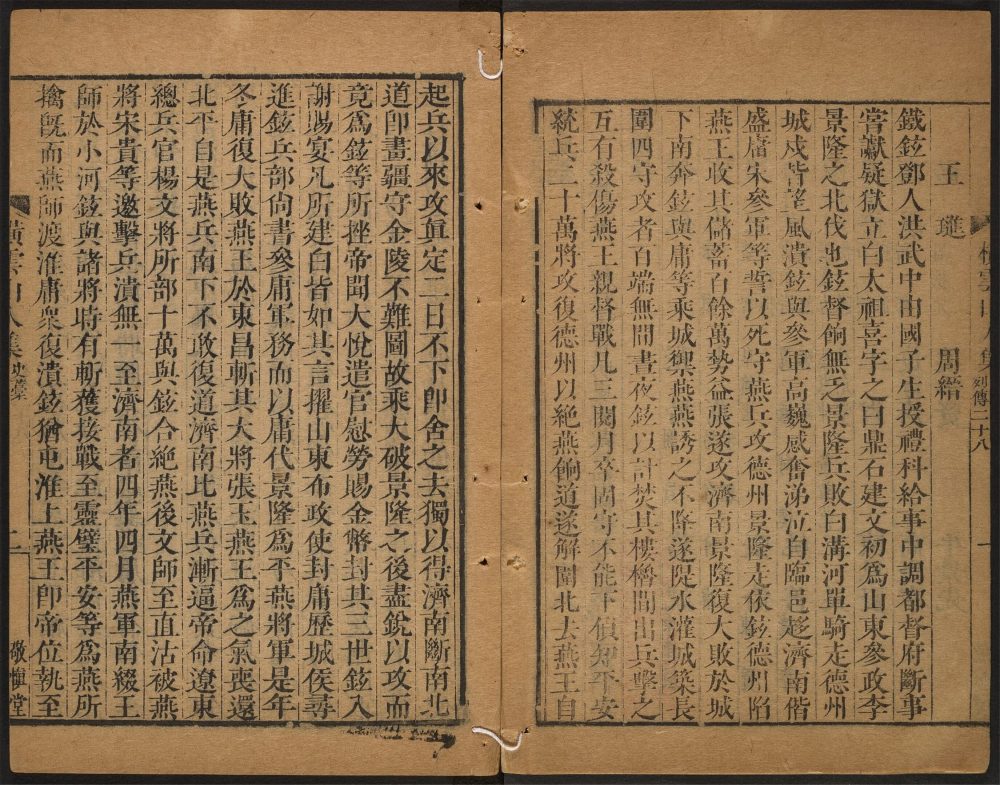 橫雲山人集 列傳二十八 一
王璡 周縉
鐵鉉鄧人洪武中由國子生授禮科給事中調都督府斷事
嘗讞疑獄立白太祖喜字之曰鼎石建文初爲山東參政李
景隆之北伐也鉉督餉無乏景隆兵敗白溝河單騎走德州
城戍皆望風潰鉉與參軍高巍感奮涕泣自臨邑趍濟南偕
盛庸宋參軍等誓以死守燕兵攻德州景隆走依鉉德州陷
燕王收其儲蓄百餘萬勢益張遂攻濟南景隆復大敗於城
下南奔鉉與庸等乘城禦燕燕誘之不降遂隄水灌城築長
圍四守攻者百端無間晝夜鉉以計焚其樓櫓間出兵擊之
互有殺傷燕王親督戰凡三閱月卒固守不能下偵知平安
統兵二十萬將攻復德州以絶燕餉道遂解圍北去燕王自
起兵以來攻眞定二日不下卽舍之去獨以得濟南斷南北
道卽畫疆守金陵不難圖故乘大破景隆之後盡銳以攻而
竟爲鉉等所挫帝聞大悅遣官慰勞賜金幣封其三世鉉入
謝賜宴凡所建白皆如其言擢山東布政使封庸歷城侯尋
進鉉兵部尚書參庸軍務而以庸代景隆爲平燕將軍是年
冬庸復大敗燕王於東昌斬其大將張玉燕王爲之氣喪還
北平自是燕兵南下不敢復道濟南比燕兵漸逼帝命遼東
總兵官楊文將所部十萬與鉉合絶燕後文師至直沽被燕
將宋貴等邀擊兵潰無一至濟南者四年四月燕軍南綴王
師於小河鉉與諸將時有斬獲接戰至靈璧平安等爲燕所
擒旣而燕師渡淮庸衆復潰鉉猶屯淮上燕王卽帝位執至
橫雲山人集 史藁 二 敬愼堂